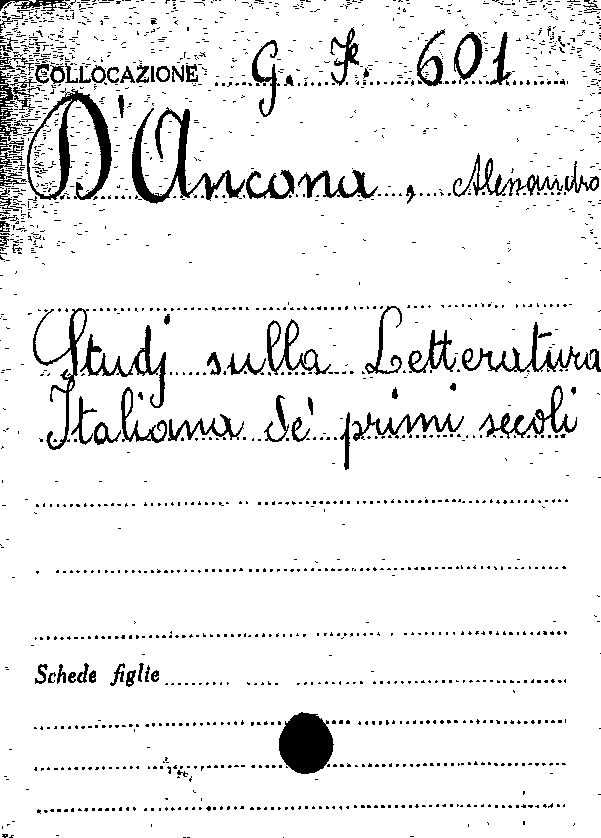 COLLOCAZIONE G. F. 601
D'Ancona, Alessandro
Studj sulla Letteratura
Italiana de' primi secoli
Schede figlie